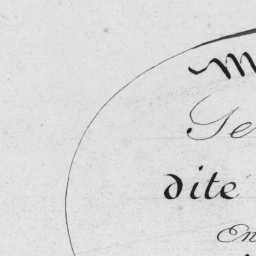 M
Ge
dite
En